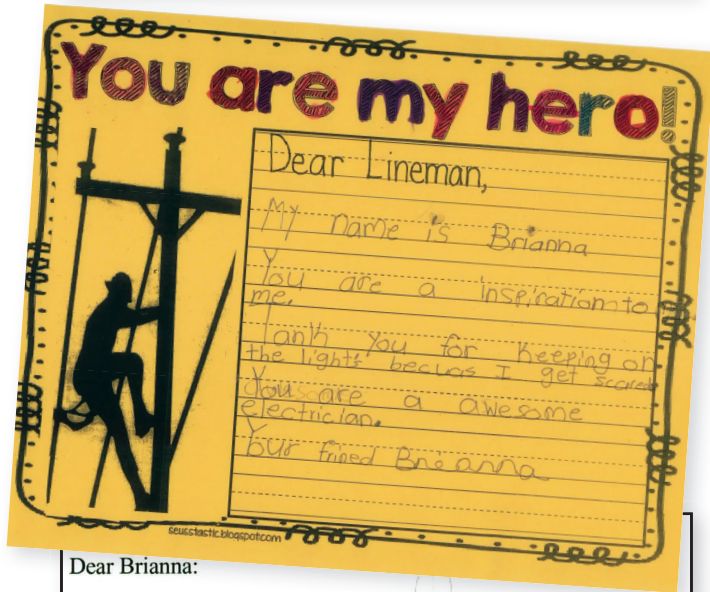 You are my hero!
Dear Lineman,
My name is Brianna
You are a inspiration to
me.
Tank you for keeping on
the lights becuas I get scared
You are a awesome
electrician.
Your frined Brianna
seusstastic.blogspot.com
Dear Brianna: